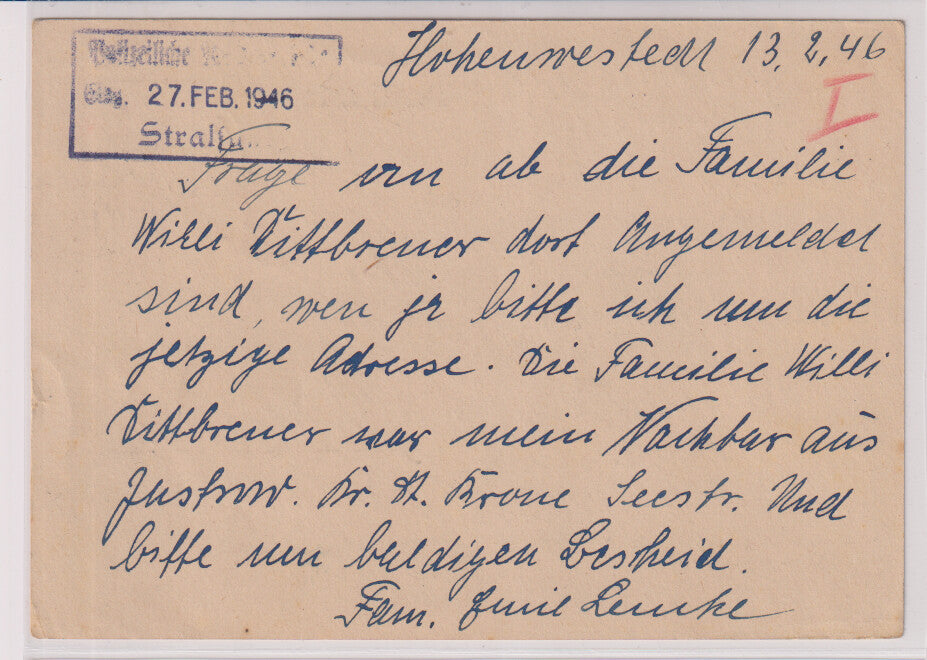 Hohenwestedt 13.2.46
I
Polizeiliche
Eing. 27. FEB. 1946
Frage an ob die Familie
Willi Dittbrener dort Angemeldet
sind, wen ja bitte ich um die
jetzige Adresse. Die Familie Willi
Dittbrener war mein Nachbar aus
Jastrow. Kr. Dt. Krone Seestr. Und
bitte um baldigen Bescheid.
Fam. Emil Lemke